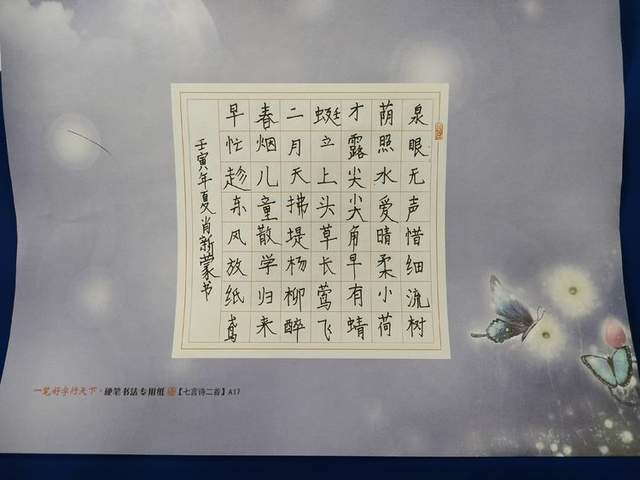 泉眼无声惜细流树
荫照水爱晴柔小荷
才露尖尖角早有蜻
蜓立上头草长莺飞
二月天拂堤杨柳醉
春烟儿童散学归来
早忙趁东风放纸鸢
壬寅年夏肖新蒙书
一笔好字行天下·硬笔书法专用纸【七言诗二首】A17